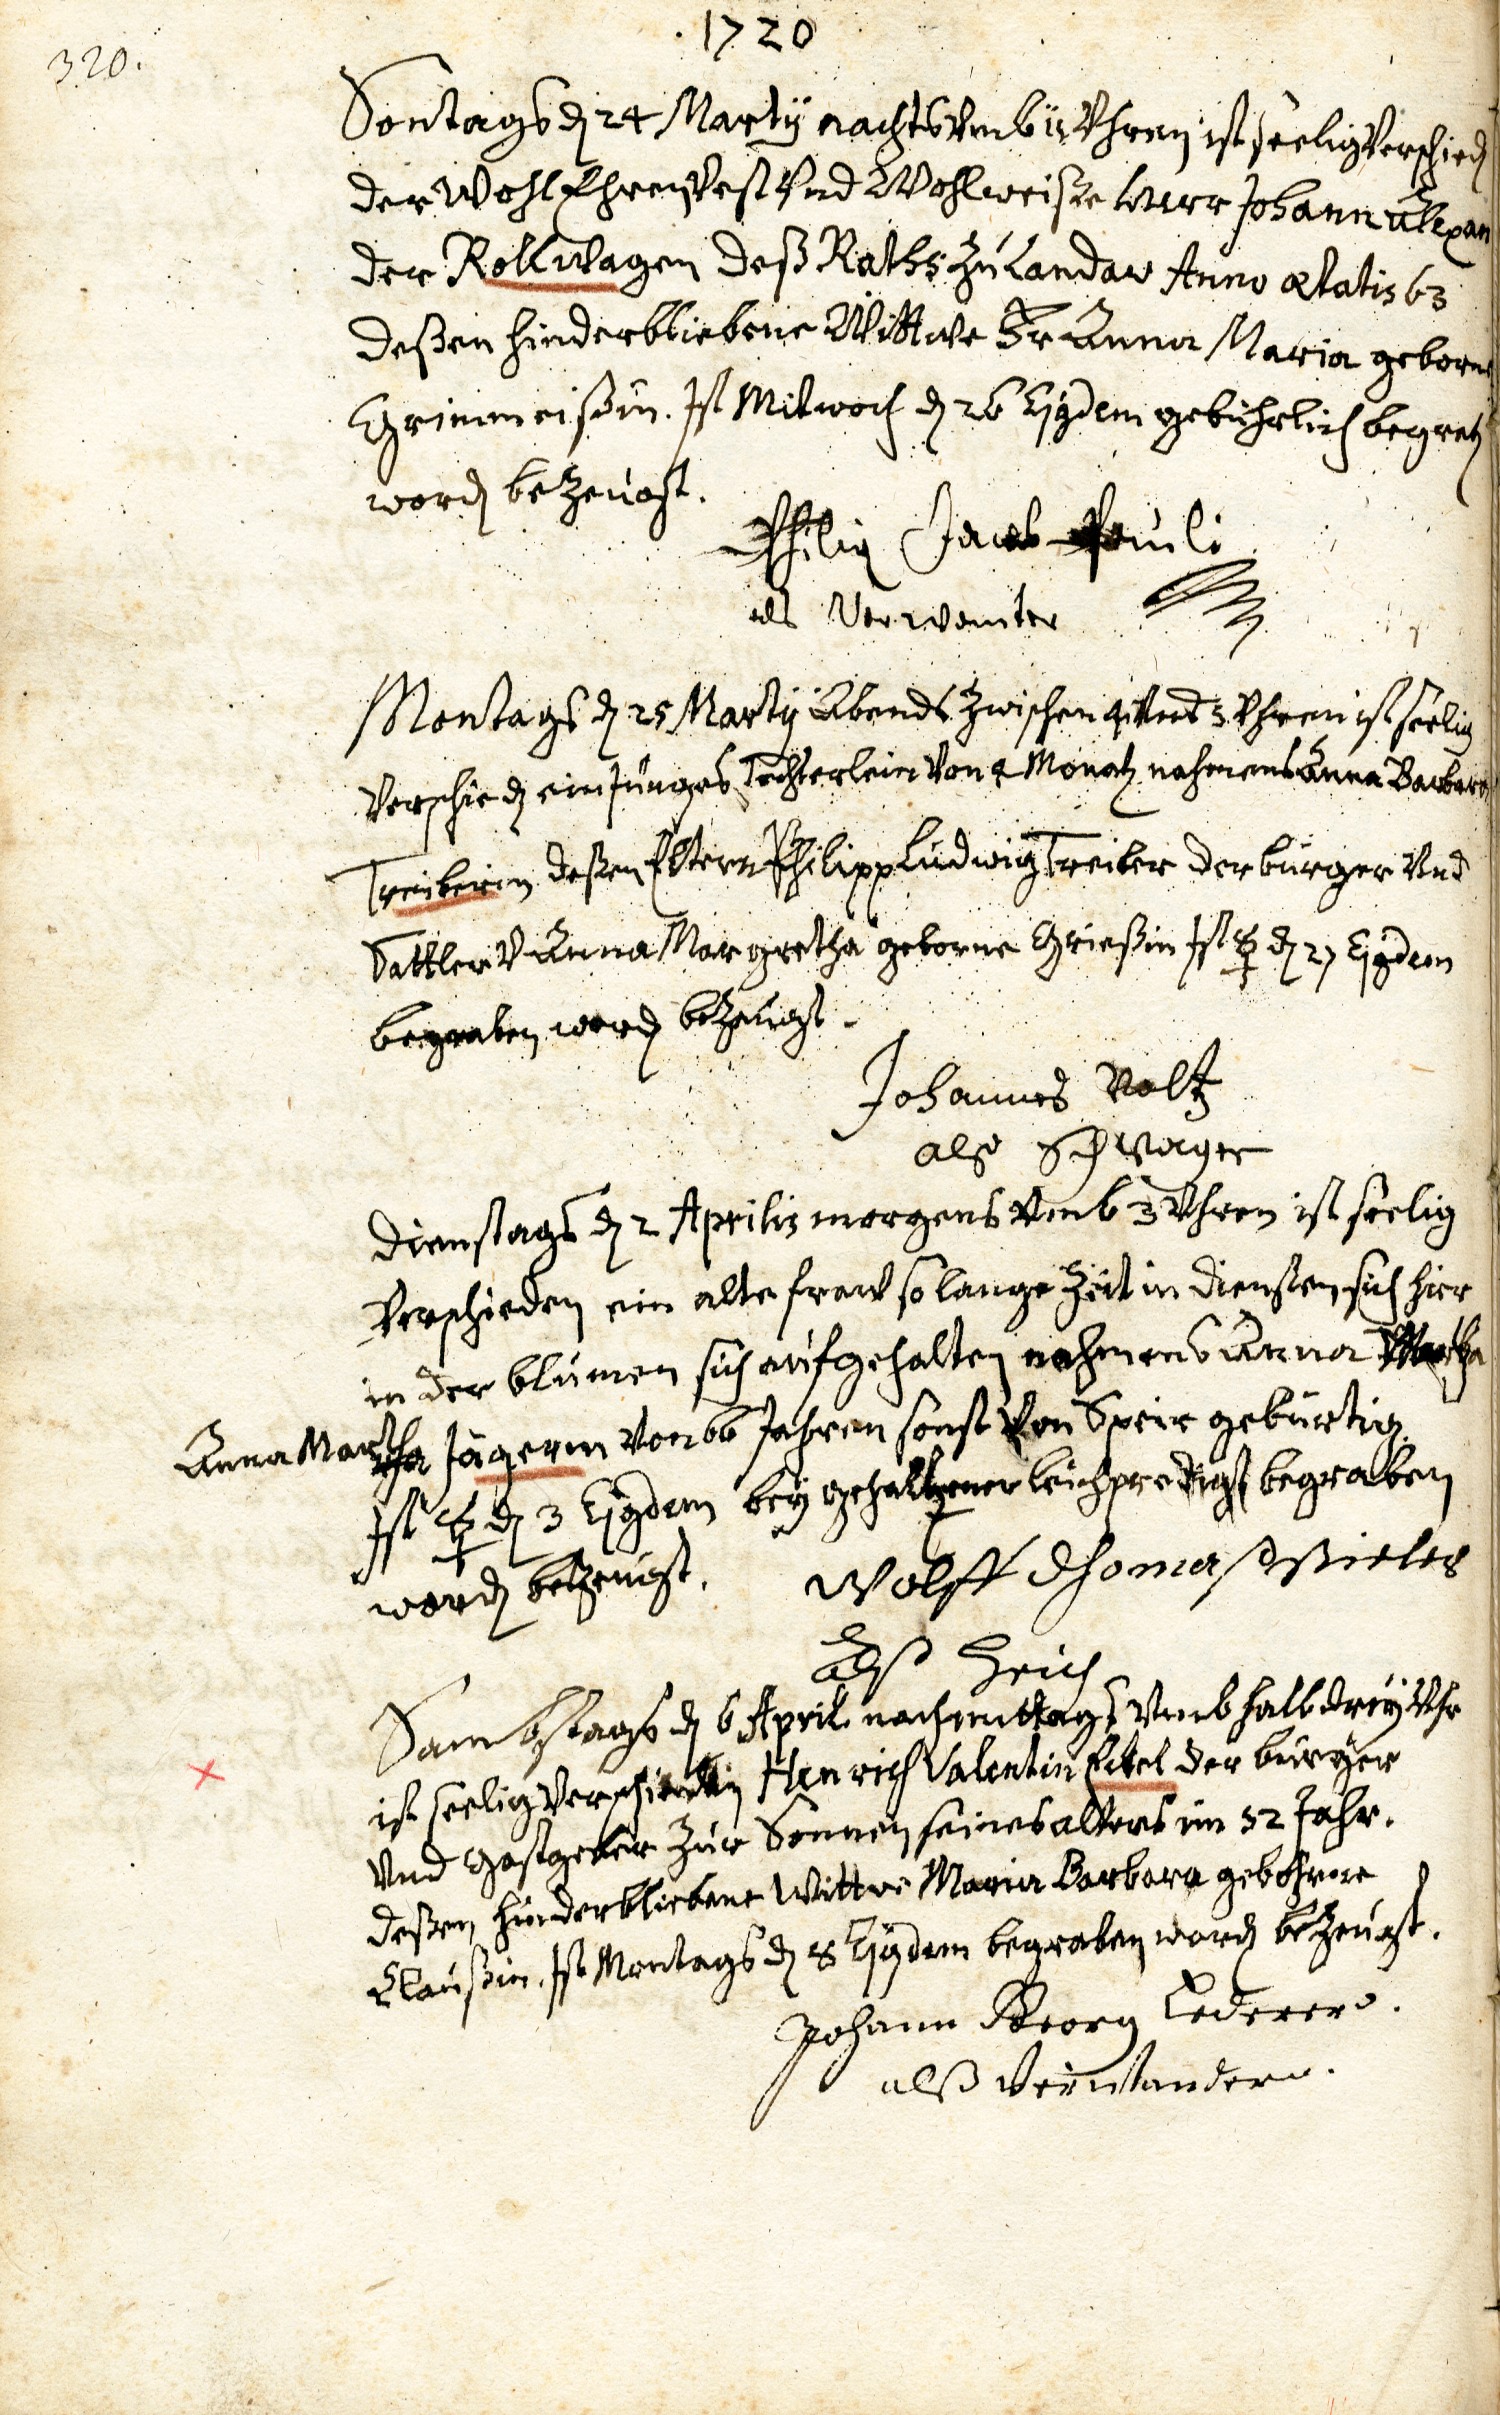 320.
1720
Sontags d. 24 Martÿ nachts umb 11 Uhren ist seelig verschied
der Wohl Ehrenvest und Wohlweiße Herr Johann Alexan
der Rollwagen deß Raths zu Landaw Anno ætatis 63
deßen hinderbliebene Wittwe Fr Anna Maria geborne
Grimmeißin. Ist Mitwoch d. 26 Ejusdem gebührlich begrab
word bezeugt.
Philip Jacob Pauli
als Verwanter
Montags d. 25 Martÿ Abends zwischen 4 und 5 Uhren ist seelig
verschied ein junges Töchterlein von 4 Monath nahmens Anna Barbara
Treiberin deßen Eltern Philipp Ludwig Treiber der burger und
Sattler v Anna Margretha geborne Grießin Ist ☿ d. 27 Ejusdem
begraben word bezeugt.
Johannes Voltz
alß Schwager
Dienstags d. 2 Aprilis morgens umb 3 Uhren ist seelig
verschieden ein alte fraw so lange Zeit in diensten sich hier
in der blumen sich aufgehalten nahmens Anna Martha
Anna Martha Jägerin von 66 Jahren sonst von Speir gebürtig
Ist ☿ d. 3 Ejusdem bey gehaltener leichpredigt begraben
word bezeugt. Wolff Thomas
Alß
Sambstags d. 6 April nachmittags umb halb dreÿ Uhr
ist seelig verschieden Henrich Valentin Eckel der burger
und Gastgeber zur Sonnen seines alters im 52 Jahr.
deßen hinderbliebene Wittwe Maria Barbara gebohrne
Claußin. Ist Montags d. 8 Ejusdem begraben word bezeugt.
Johann Georg Lederer.
alß Verwander.